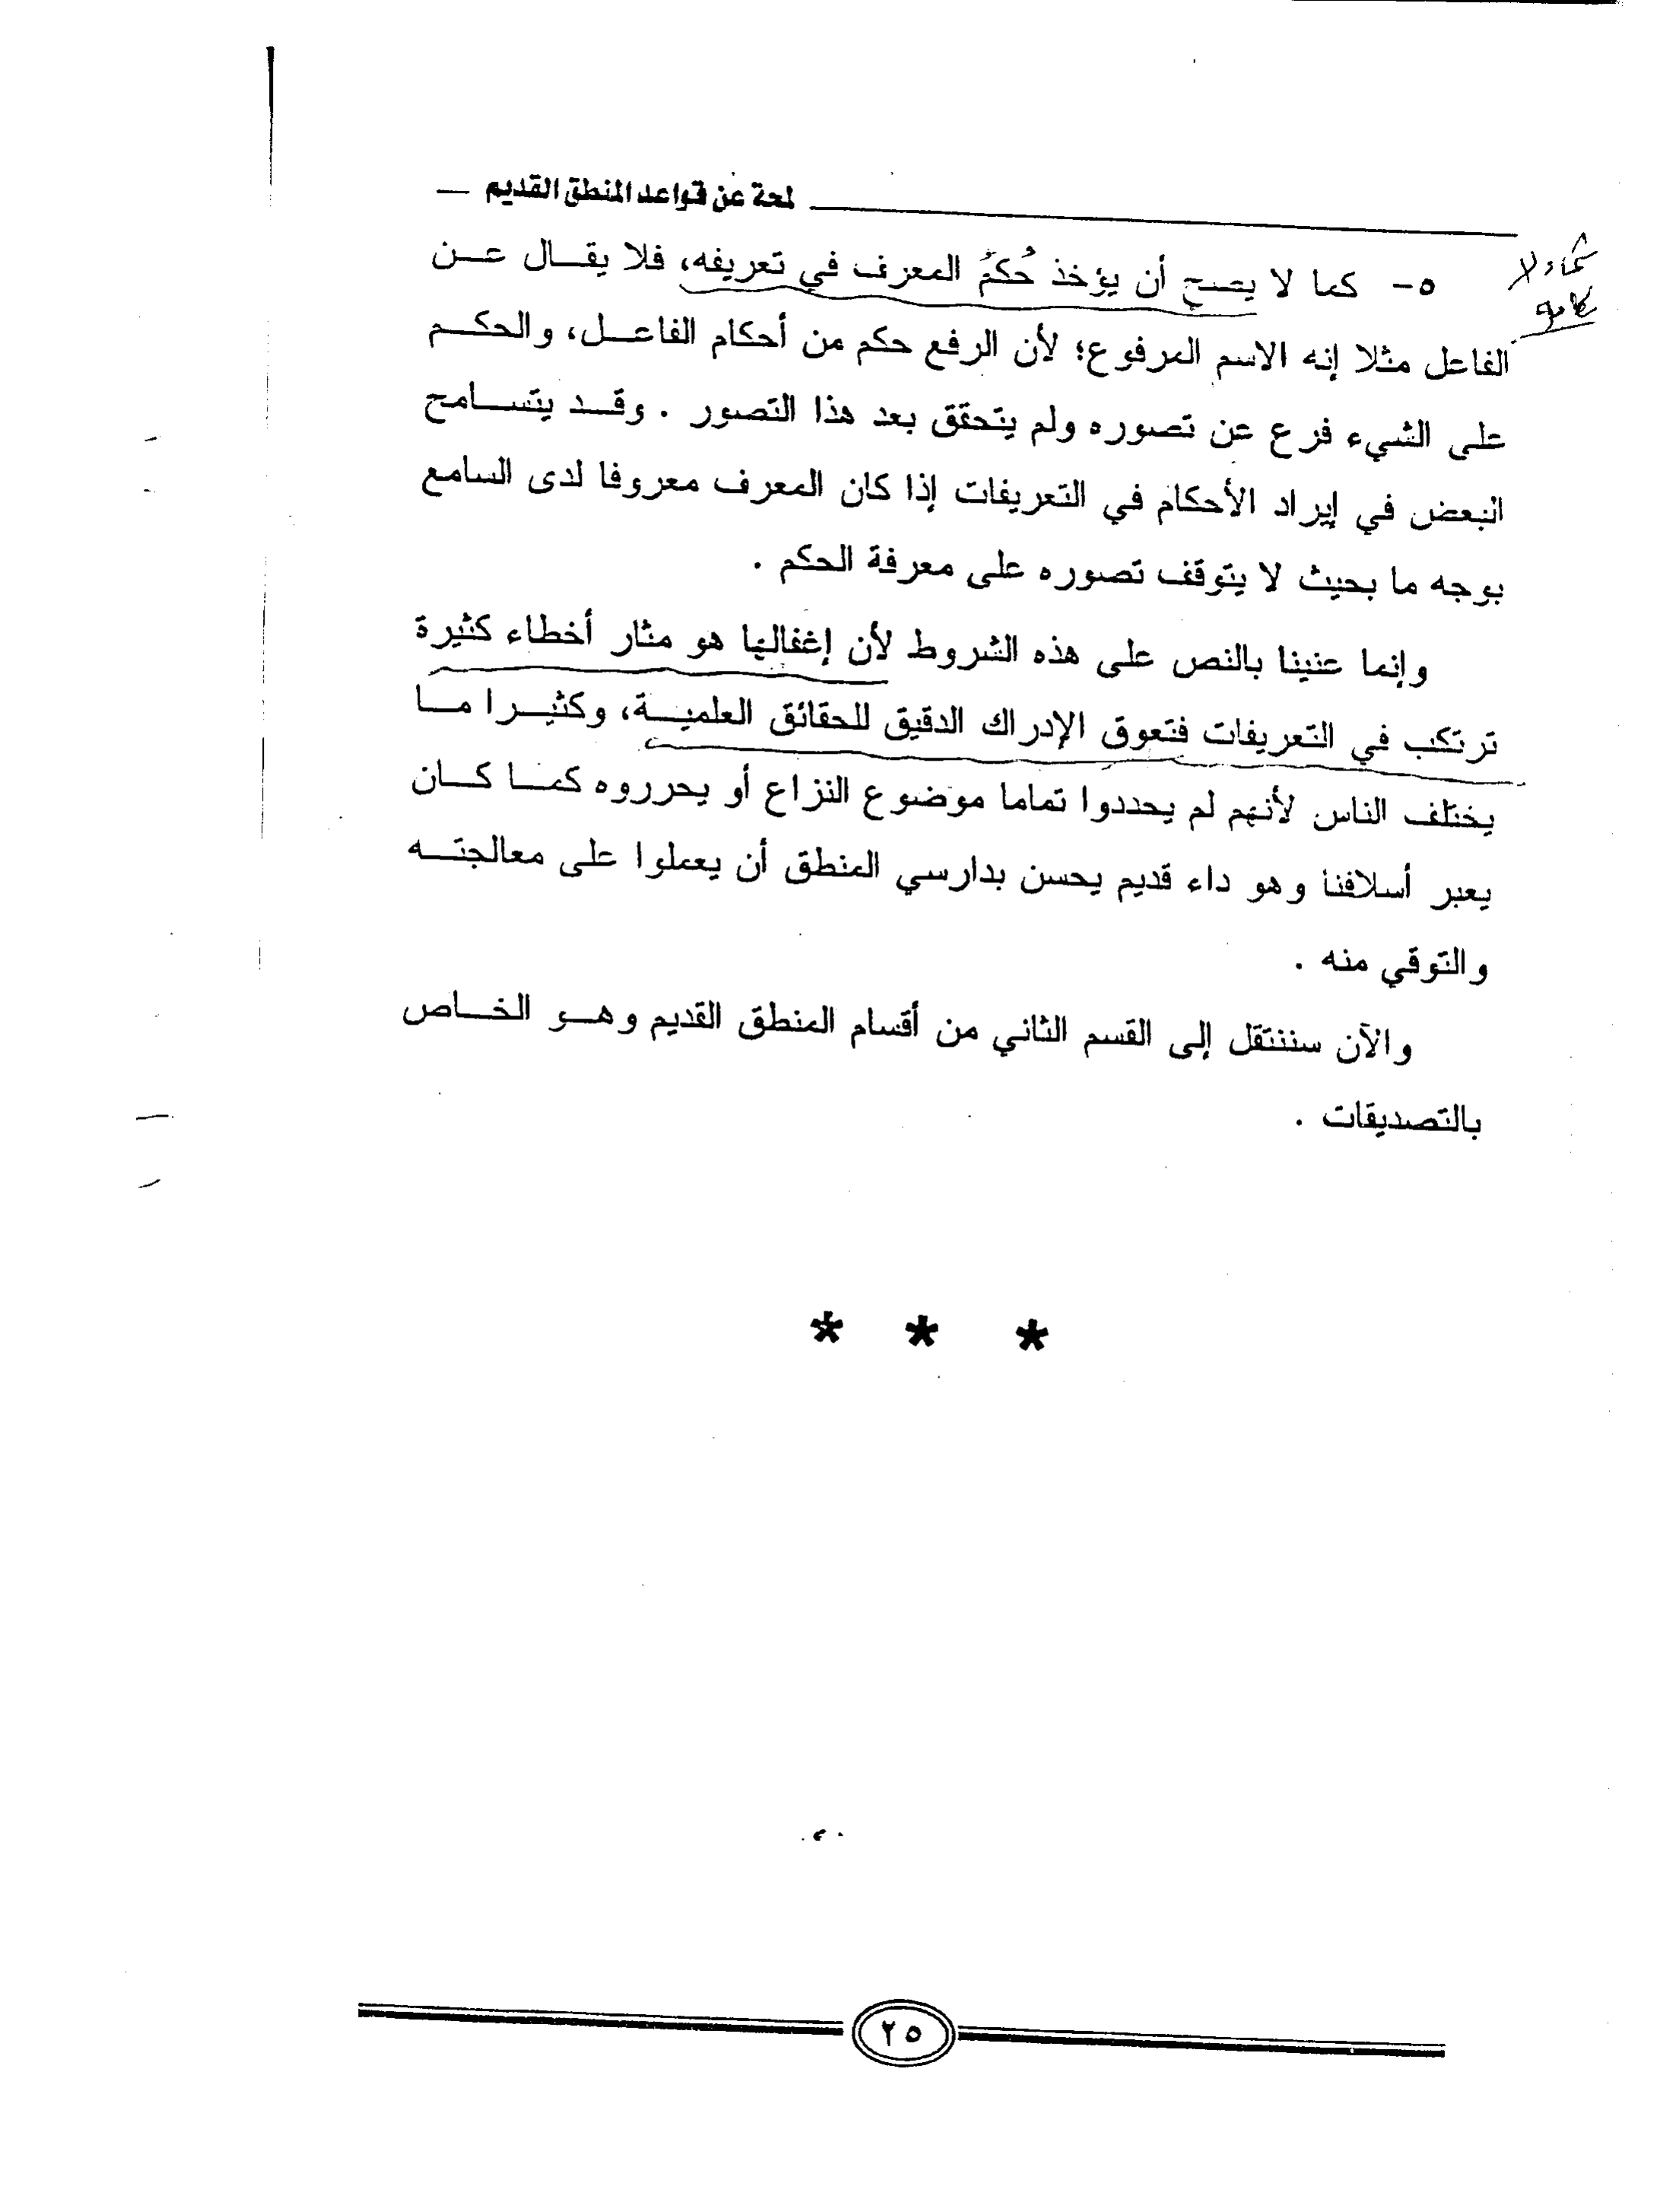 لمحة عن قواعد المنطق القديم
٥- كما لا يصح أن يؤخذ حُكمُ المعرف في تعريفه، فلا يقال عن
الفاعل مثلا إنه الاسم المرفوع؛ لأن الرفع حكم من أحكام الفاعل، والحكم
على الشيء فرع عن تصوره ولم يتحقق بعد هذا التصور . وقد يتسامح
البعض في إيراد الأحكام في التعريفات إذا كان المعرف معروفا لدى السامع
بوجه ما بحيث لا يتوقف تصوره على معرفة الحكم .
وإنما عنينا بالنص على هذه الشروط لأن إغفالها هو مثار أخطاء كثيرة
ترتكب في التعريفات فتعوق الإدراك الدقيق للحقائق العلمية، وكثيرا ما
يختلف الناس لأنهم لم يحددوا تماما موضوع النزاع أو يحرروه كما كان
يعبر أسلافنا وهو داء قديم يحسن بدارسي المنطق أن يعملوا على معالجته
والتوقي منه .
والآن سننتقل إلى القسم الثاني من أقسام المنطق القديم وهو الخاص
بالتصديقات .
* * *
٢٥